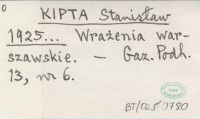 0
KIPTA Stanisław
1925... Wrażenia war-
szawskie. — Gaz. Podh.
13, nr 6.